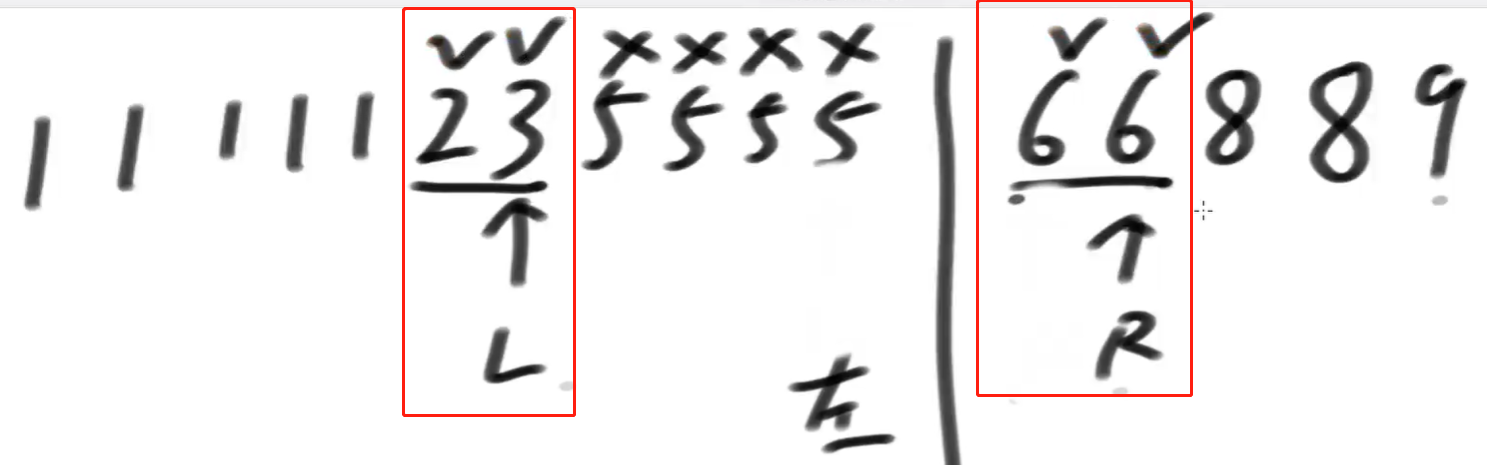 ✓ ✓ × × × × ✓ ✓
1 1 1 1 1 2 3 5 5 5 5 | 6 6 8 8 9
↑ ↑
L R
左